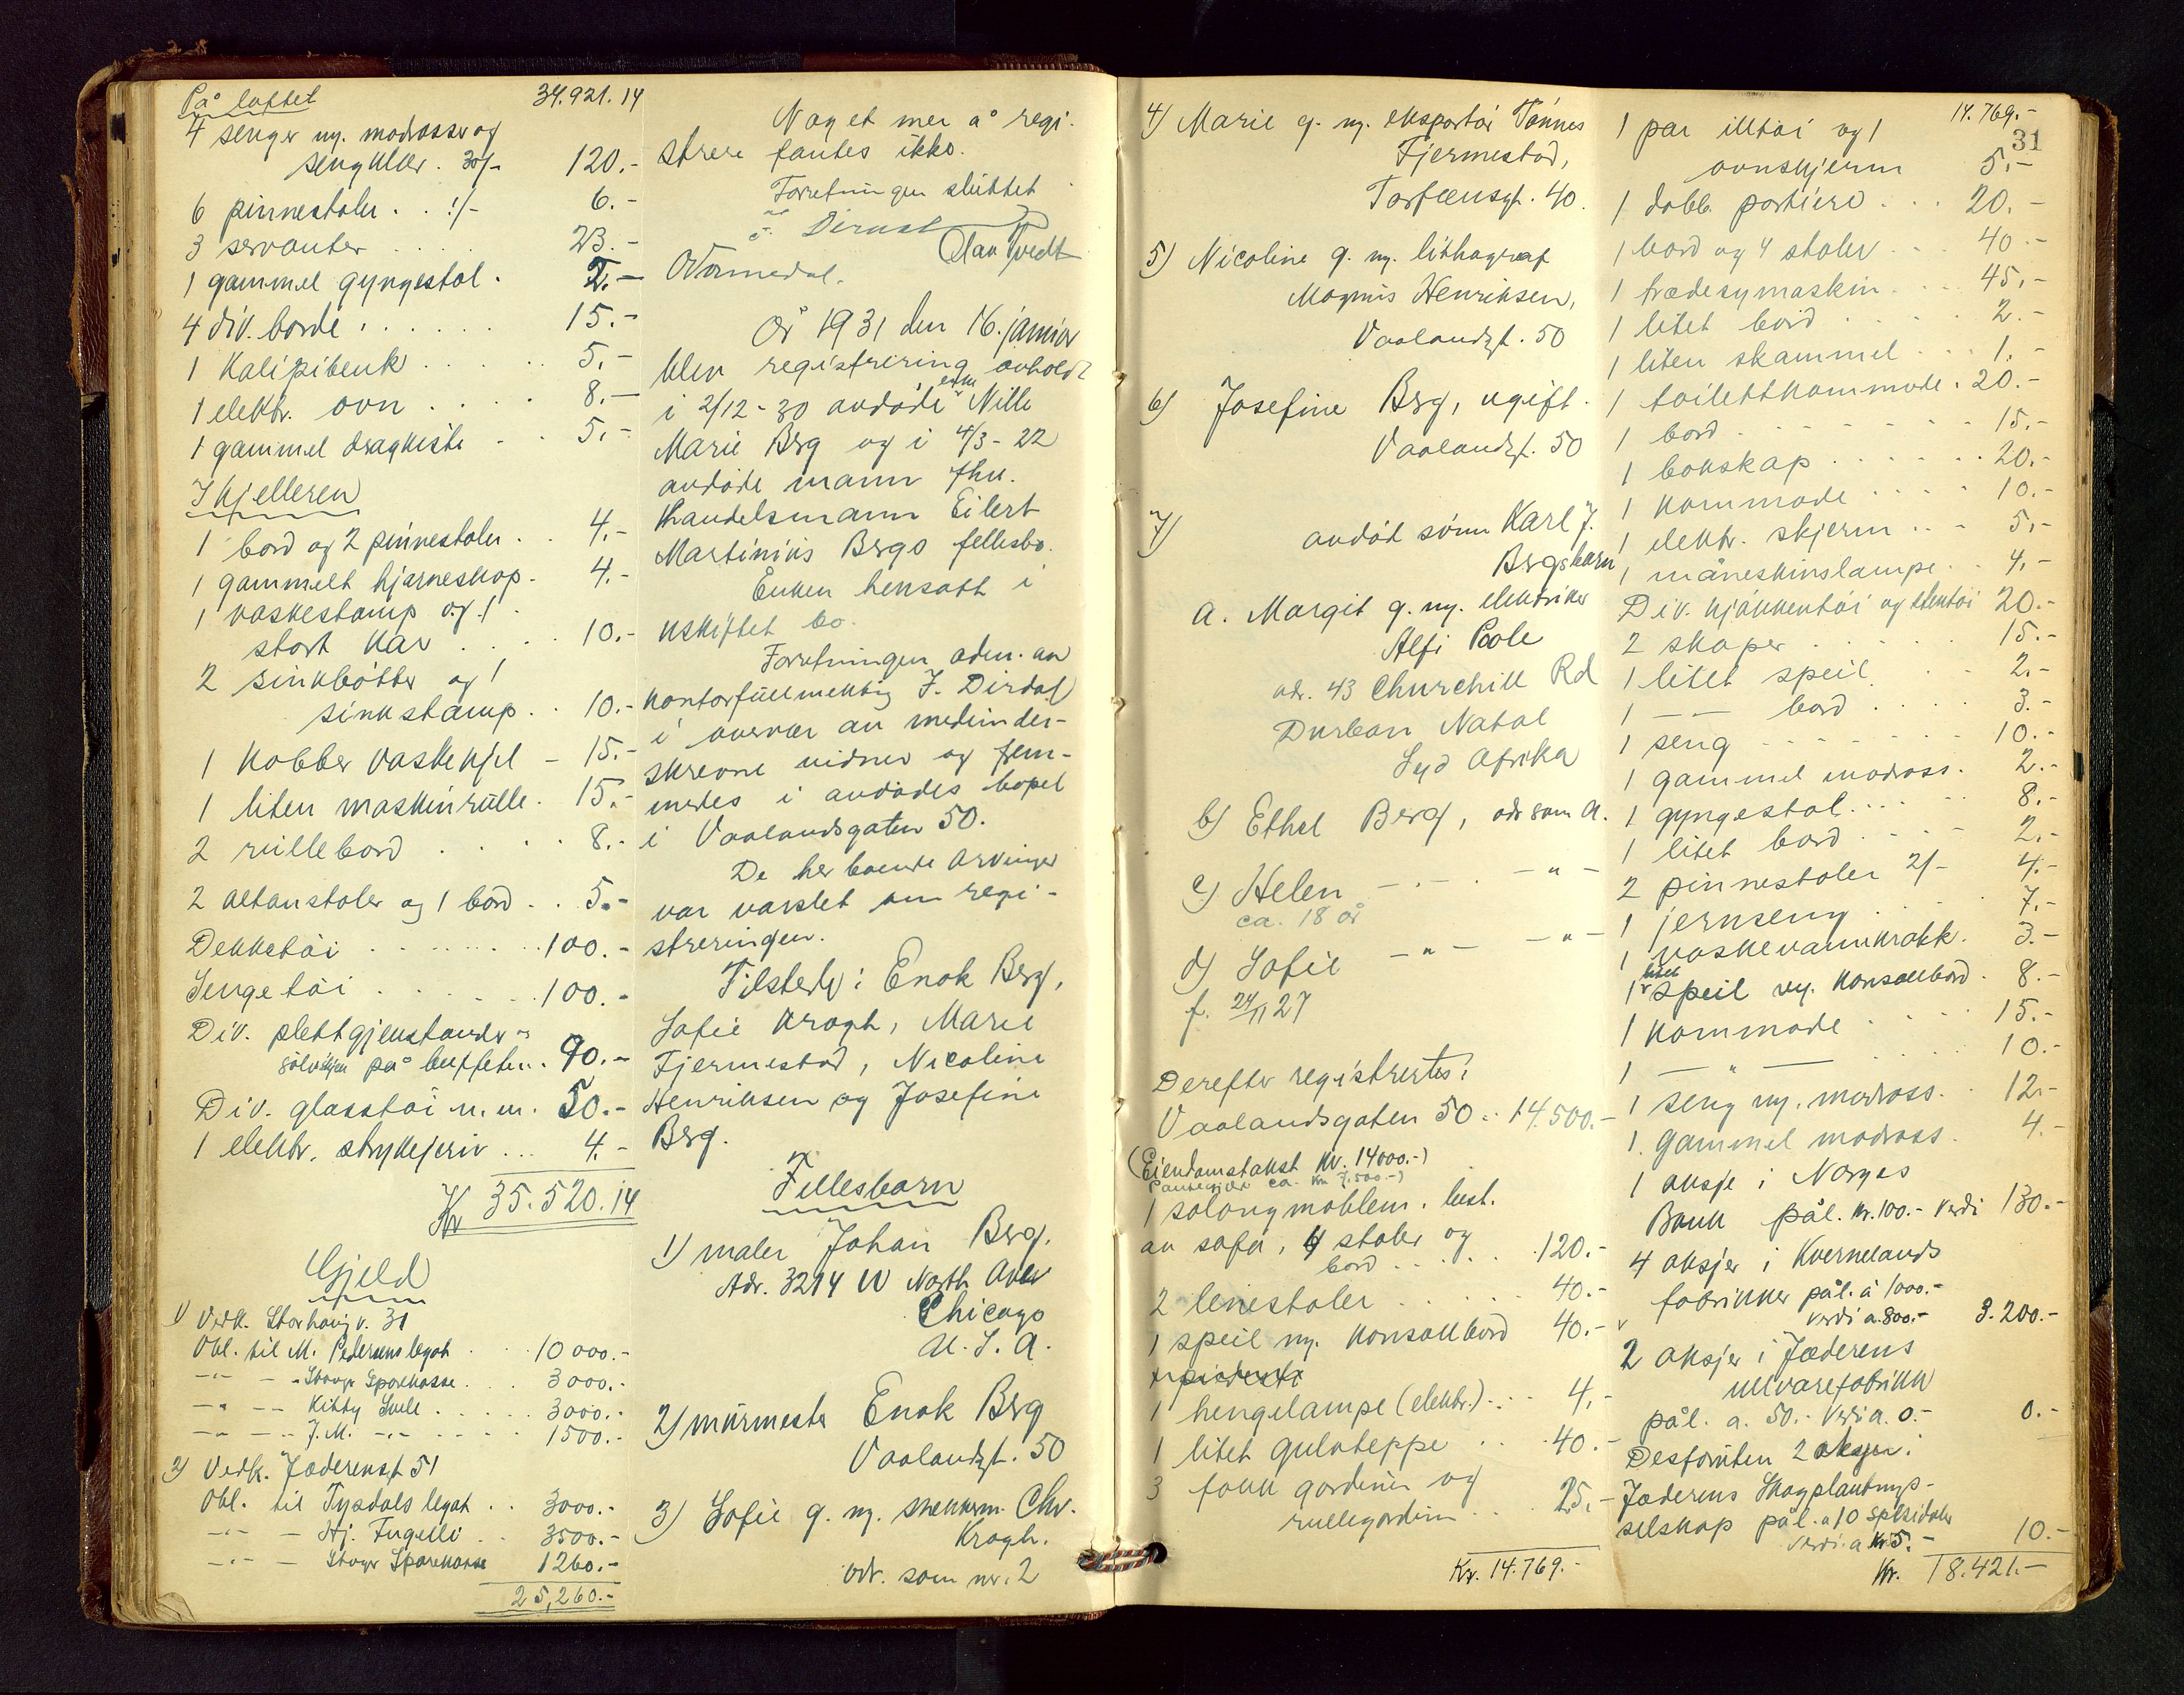 På loftet 34.921.14
4 senger m. madrasser og
sengklær. 30/- 120.-
6 pinnestoler . . 1/- 6.-
3 servanter . . . . 23.-
1 gammel gyngestol . 2.-
4 div. borde . . . . . . 15.-
1 Kalipibenk . . . . . . 5.-
1 elektr. ovn . . . . 8.-
1 gammel dragkiste - . 5.-
I kjelleren
1 bord og 2 pinnestoler . . 4.-
1 gammelt hjørneskap . 4.-
1 vaskestamp og 1
stort kar . . . . 10.-
2 sinkbøtter og 1
sinkstamp . . 10.-
1 kobber vaskekjel - 15.-
1 liten maskinrulle . 15.-
2 rullebord . . . . 8.-
2 altanstoler og 1 bord . . 5.-
Dekketøi . . . . . . . 100.-
Sengetøi . . . . . . 100.-
Div. plettgjenstander og
sølvskjeer på buffeten . . 90.-
Div. glasstøi m. m. 50.-
1 elektr. strykejern . . . 4.-
Kr 35.520.14
Gjeld
1) Vedk. Storhaugv. 31
Obl. til M. Pedersens legat . . 10 000.-
-"- - - Stavgr Sparekasse . . . 3 000.-
-"- -- Kitty Svele . . . . . 3000.-
-"- -- J.M. -"- - - - - 1500.-
2) Vedk. Jæderensgt 51
Obl. til Tysdals legat . . 3000.-
-"- - Hj. Fugelli . . 3500.-
-"- - Stavgr Sparekasse 1260.-
25,260.-
Noget mer å regi-
strere fantes ikke.
Forretningen sluttet
Olav Tvedt
År 1931 den 16. januar
blev registrering avholdt
i 2/12-30 avdøde enke Nille
Marie Berg og i 4/3-22
avdøde mann fhv.
handelsmann Eilert
Martinius Bergs fellesbo.
Enken hensatt i
uskiftet bo.
Forretningen adm. av
kontorfullmektig J. Dirdal
i overvær av medunder-
skrevne vidner og frem-
mødes i avdødes bopel
i Vaalandsgaten 50.
De her boende arvinger
var varslet om regi-
streringen.
Tilstede: Enok Berg,
Sofie Krogh, Marie
Fjermestad, Nicoline
Henriksen og Josefine
Berg.
Fellesbarn
1) maler Johan Berg.
Adr. 3214 W North Aven
Chicago
U. S. A.
2) murmester Enok Berg
Vaalandsgt. 50
3) Sofie g. m. snekkerm. Chr.
Krogh.
adr. som nr. 2
4) Marie g. m. ekspeditør Tønnes
Fjermestad,
Torfæusgt. 40.
5) Nicoline g. m. lithograf
Magnus Henriksen,
Vaalandsgt. 50
6) Josefine Berg, ugift.
Vaalandsgt. 50
7) avdød sønn Karl J.
Bergs barn
a. Margit g. m. elektriker
Alfi Poole
adr. 43 Churchill Rd
Durban Natal
Syd Afrika
b) Ethel Berg, adr som a.
c) Helen -.-. -"-
ca. 18 år
d) Sofie -"- -"-
f. 24/11 27
Derefter registrertes:
Vaalandsgaten 50 . . 14.500.-
(Eiendomstakst kr. 14000.-)
Pantegjeld ca. kr 7.500.-)
1 salongmøblem. best.
av sofa, 4 stoler og
bord . . . . . 120.-
2 lenestoler . . . . . 40.-
1 speil m. konsollbord 40.-
1 hengelampe (elektr.) . . . 4.-
1 litet gulvteppe . . 40.-
3 fakk gardiner og
rullegardin . . . 25.-
Kr. 14.769.-
14.769.-
31
1 par illtøi og 1
ovnskjerm 5.-
1 dobb. portiere . . . 20.-
1 bord og 4 stoler . . . 40.-
1 trædesymaskin . . . 45.-
1 litet bord . . . . . 2.-
1 liten skammel . . . 1.-
1 toilettkommode . 20.-
1 bord . . . . . . . 15.-
1 bokskap . . . . . . 20.-
1 kommode . . . . . 10.-
1 elektr. skjerm . . . 5.-
1 måneskinslampe . . 4.-
Div. kjøkkentøi og stentøi 20.-
2 skaper . . . . . 15.-
1 litet speil . . 2.-
1 -- bord . . . . 3.-
1 seng . . . . . . . 10.-
1 gammel madrass . 2.-
1 gyngestol . . . . . . 8.-
1 litet bord . . . . 2.-
2 pinnestoler 2/- 4.-
1 jernseng . . . . 7.-
1 vaskevannkrakk . 3.-
1 litet speil m. konsollbord . 8.-
1 kommode . . . . 15.-
1 -"- . . . . . 10.-
1 seng m. madrass . . 12.-
1 gammel madrass . 4.-
1 aksje i Norges
Bank pål. kr. 100.- verdi 130.-
4 aksjer i Kvernelands
fabrikker pål. à 1000.-
verdi a. 800.- 3.200.-
2 aksjer i Jæderens
uldvarefabrikk
pål. a. 50.- Verdi a. 0.- 0.-
Desforuten 2 aksjer i
Jæderens Skogplantnings-
selskap pål. a 10 Spesidaler
verdi a kr 5.- 10.-
Kr. 18.421.-